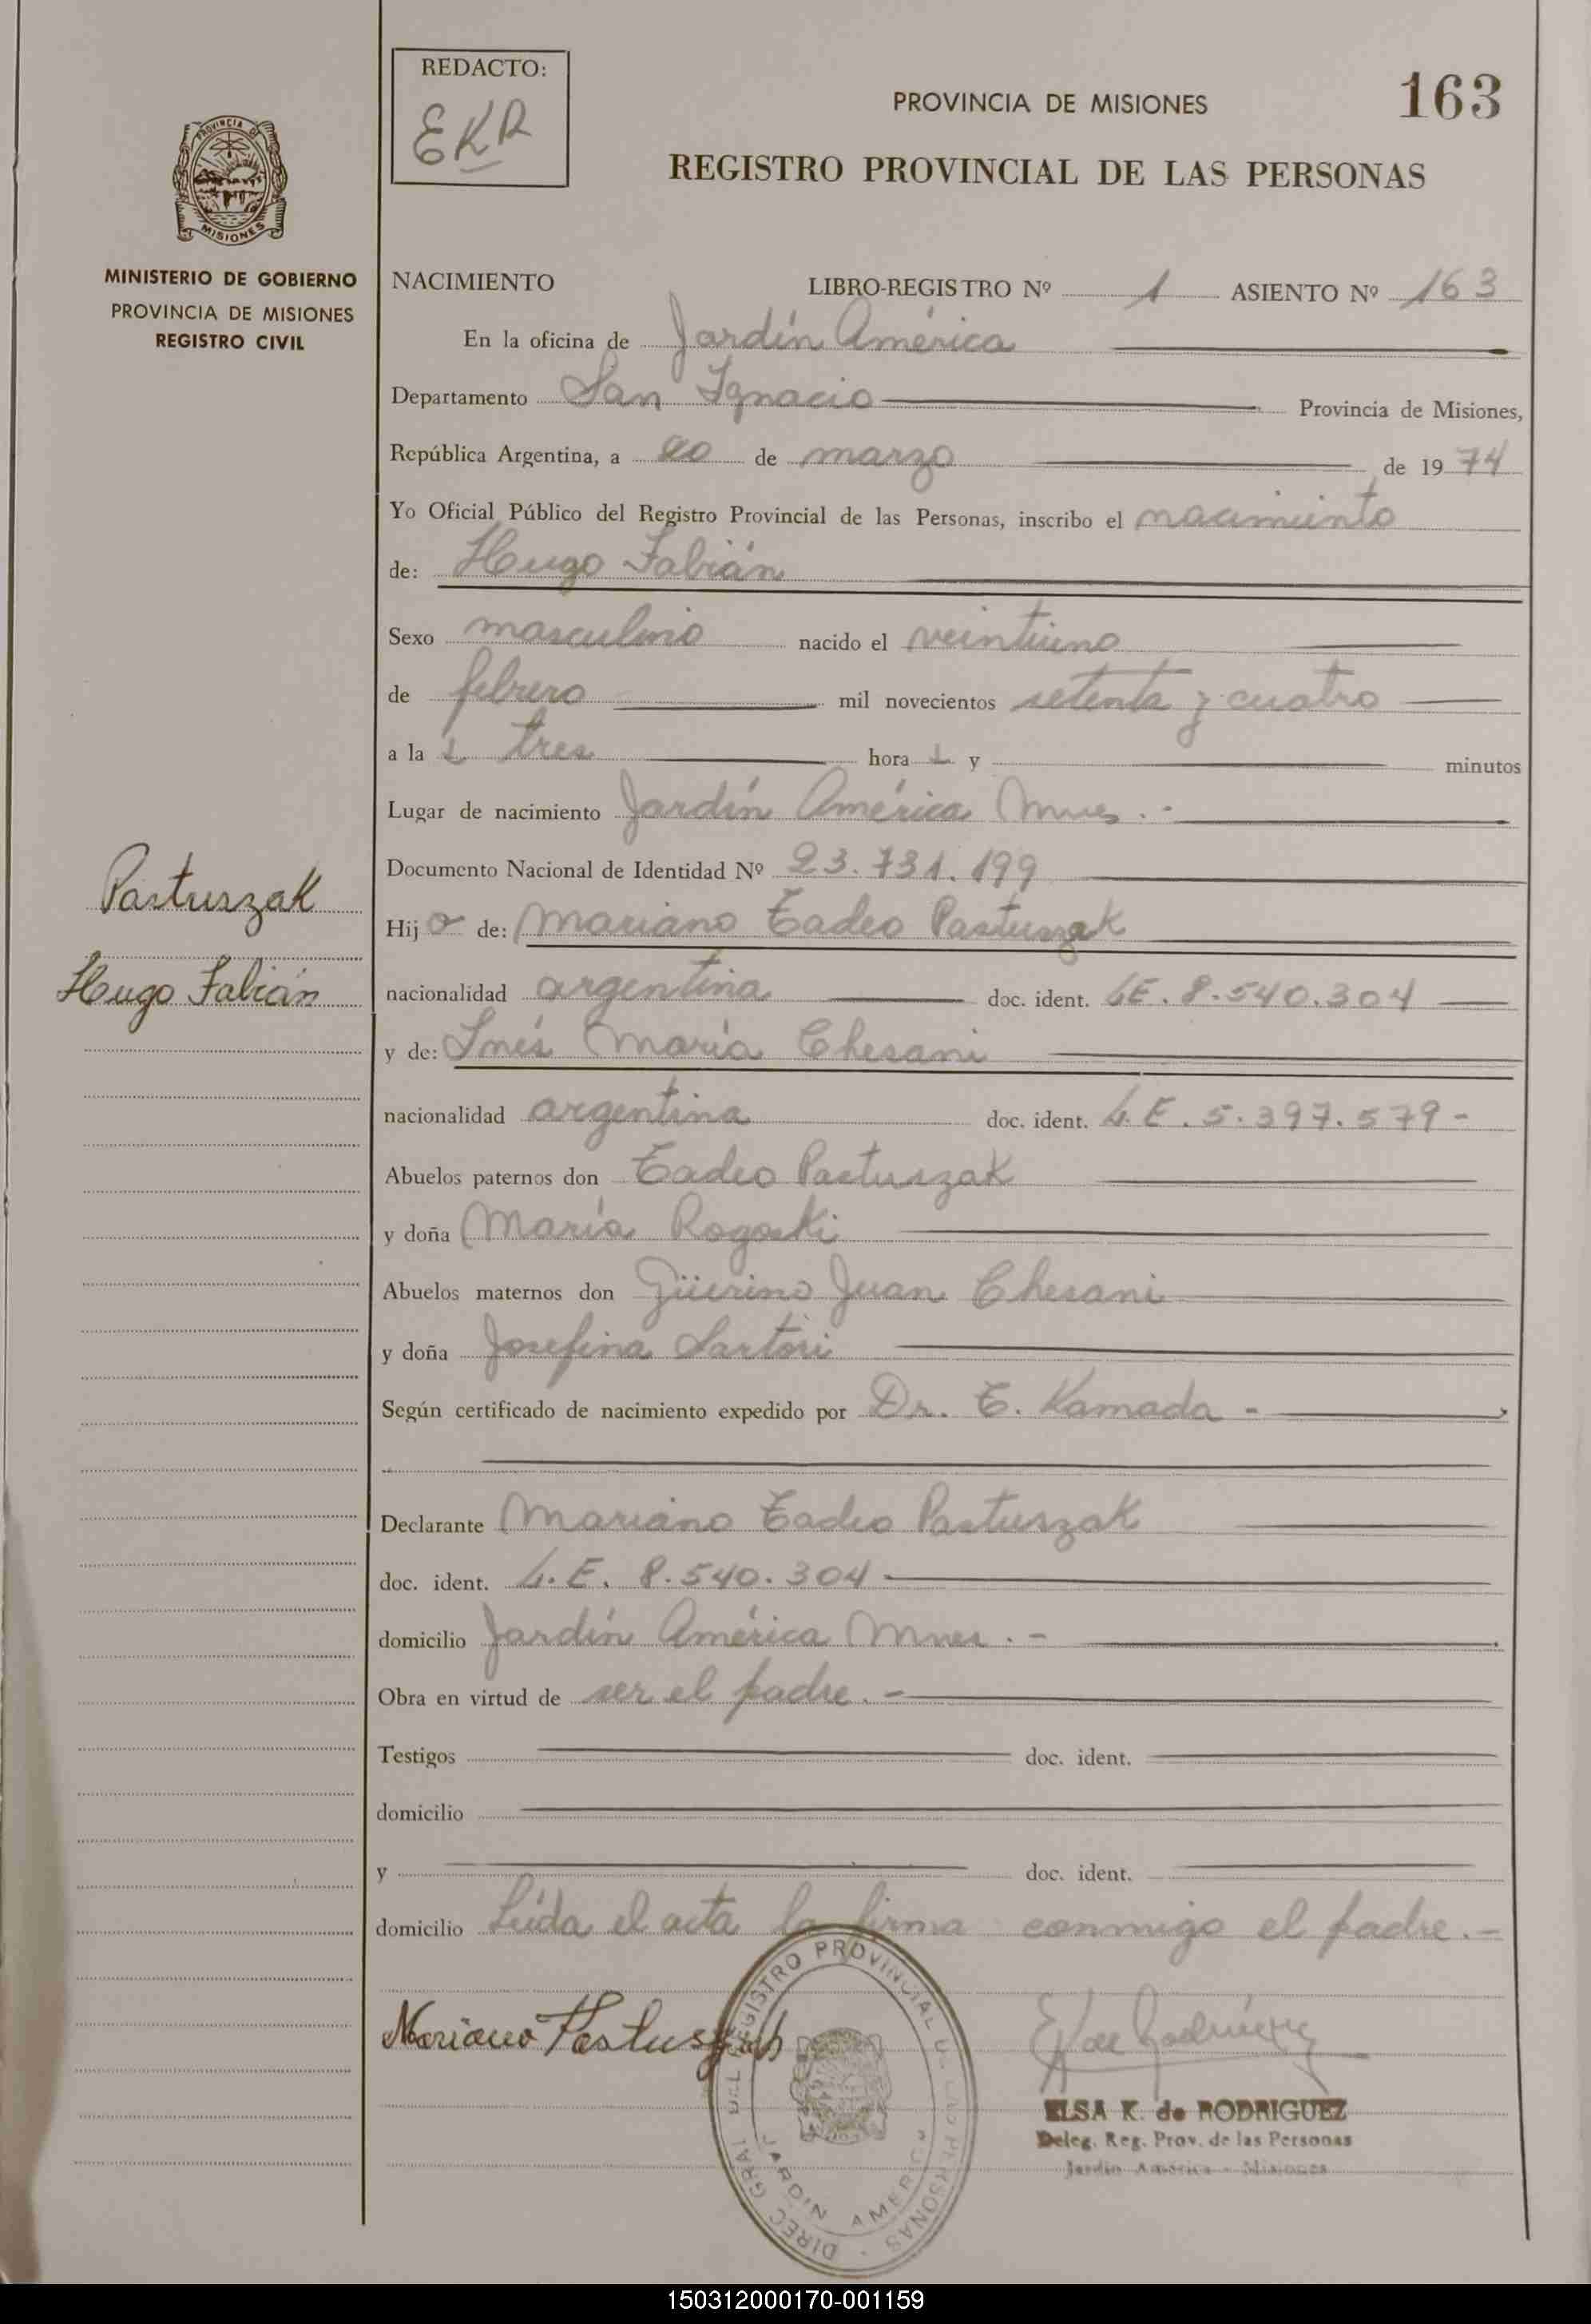 REDACTO:
EKR
PROVINCIA DE MISIONES
163
REGISTRO PROVINCIAL DE LAS PERSONAS
PROVINCIA DE
MISIONES
MINISTERIO DE GOBIERNO
PROVINCIA DE MISIONES
REGISTRO CIVIL
NACIMIENTO LIBRO-REGISTRO Nº 1 ASIENTO Nº 163
En la oficina de Jardín América
Departamento San Ignacio Provincia de Misiones,
República Argentina, a 20 de marzo de 1974
Yo Oficial Público del Registro Provincial de las Personas, inscribo el nacimiento
de: Hugo Fabián
Sexo masculino nacido el veintiuno
de febrero mil novecientos setenta y cuatro
a la s tres hora s y minutos
Lugar de nacimiento Jardín América Mnes. -
Documento Nacional de Identidad Nº 23.731.199
Pastuszak
Hijo de: Mariano Tadeo Pastuszak
Hugo Fabián
nacionalidad argentina doc. ident. L.E. 8.540.304
y de: Inés María Chesani
nacionalidad argentina doc. ident. L.E. 5.397.579 -
Abuelos paternos don Tadeo Pastuszak
y doña María Rogoski
Abuelos maternos don Güerino Juan Chesani
y doña Josefina Sartori
Según certificado de nacimiento expedido por Dr. T. Kamada -
Declarante Mariano Tadeo Pastuszak
doc. ident. L.E. 8.540.304
domicilio Jardín América Mnes. -
Obra en virtud de ser el padre. -
Testigos doc. ident.
domicilio
y doc. ident.
domicilio Leída el acta la firma conmigo el padre. -
Mariano Pastuszak
DIREC. GRAL. DEL REGISTRO PROVINCIAL DE LAS PERSONAS
JARDIN AMERICA
E K de Rodríguez
ELSA K. de RODRIGUEZ
Deleg. Reg. Prov. de las Personas
Jardín América - Misiones
150312000170-001159